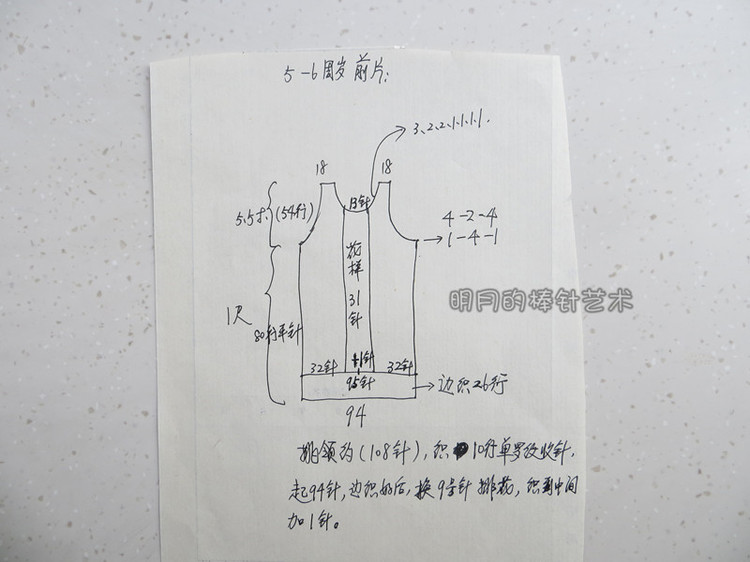 5-6周岁前片:
3、2、2、1、1、1、1.
18
18
13针
5.5寸(54行)
4-2-4
1-4-1
花样31针
明月的棒针艺术
1尺
80行平针
+1针
32针
32针
95针
边织26行
94
挑领约(108针),织10行单罗纹收针,
起94针,边织好后,换9号针排花,织到中间
加1针。